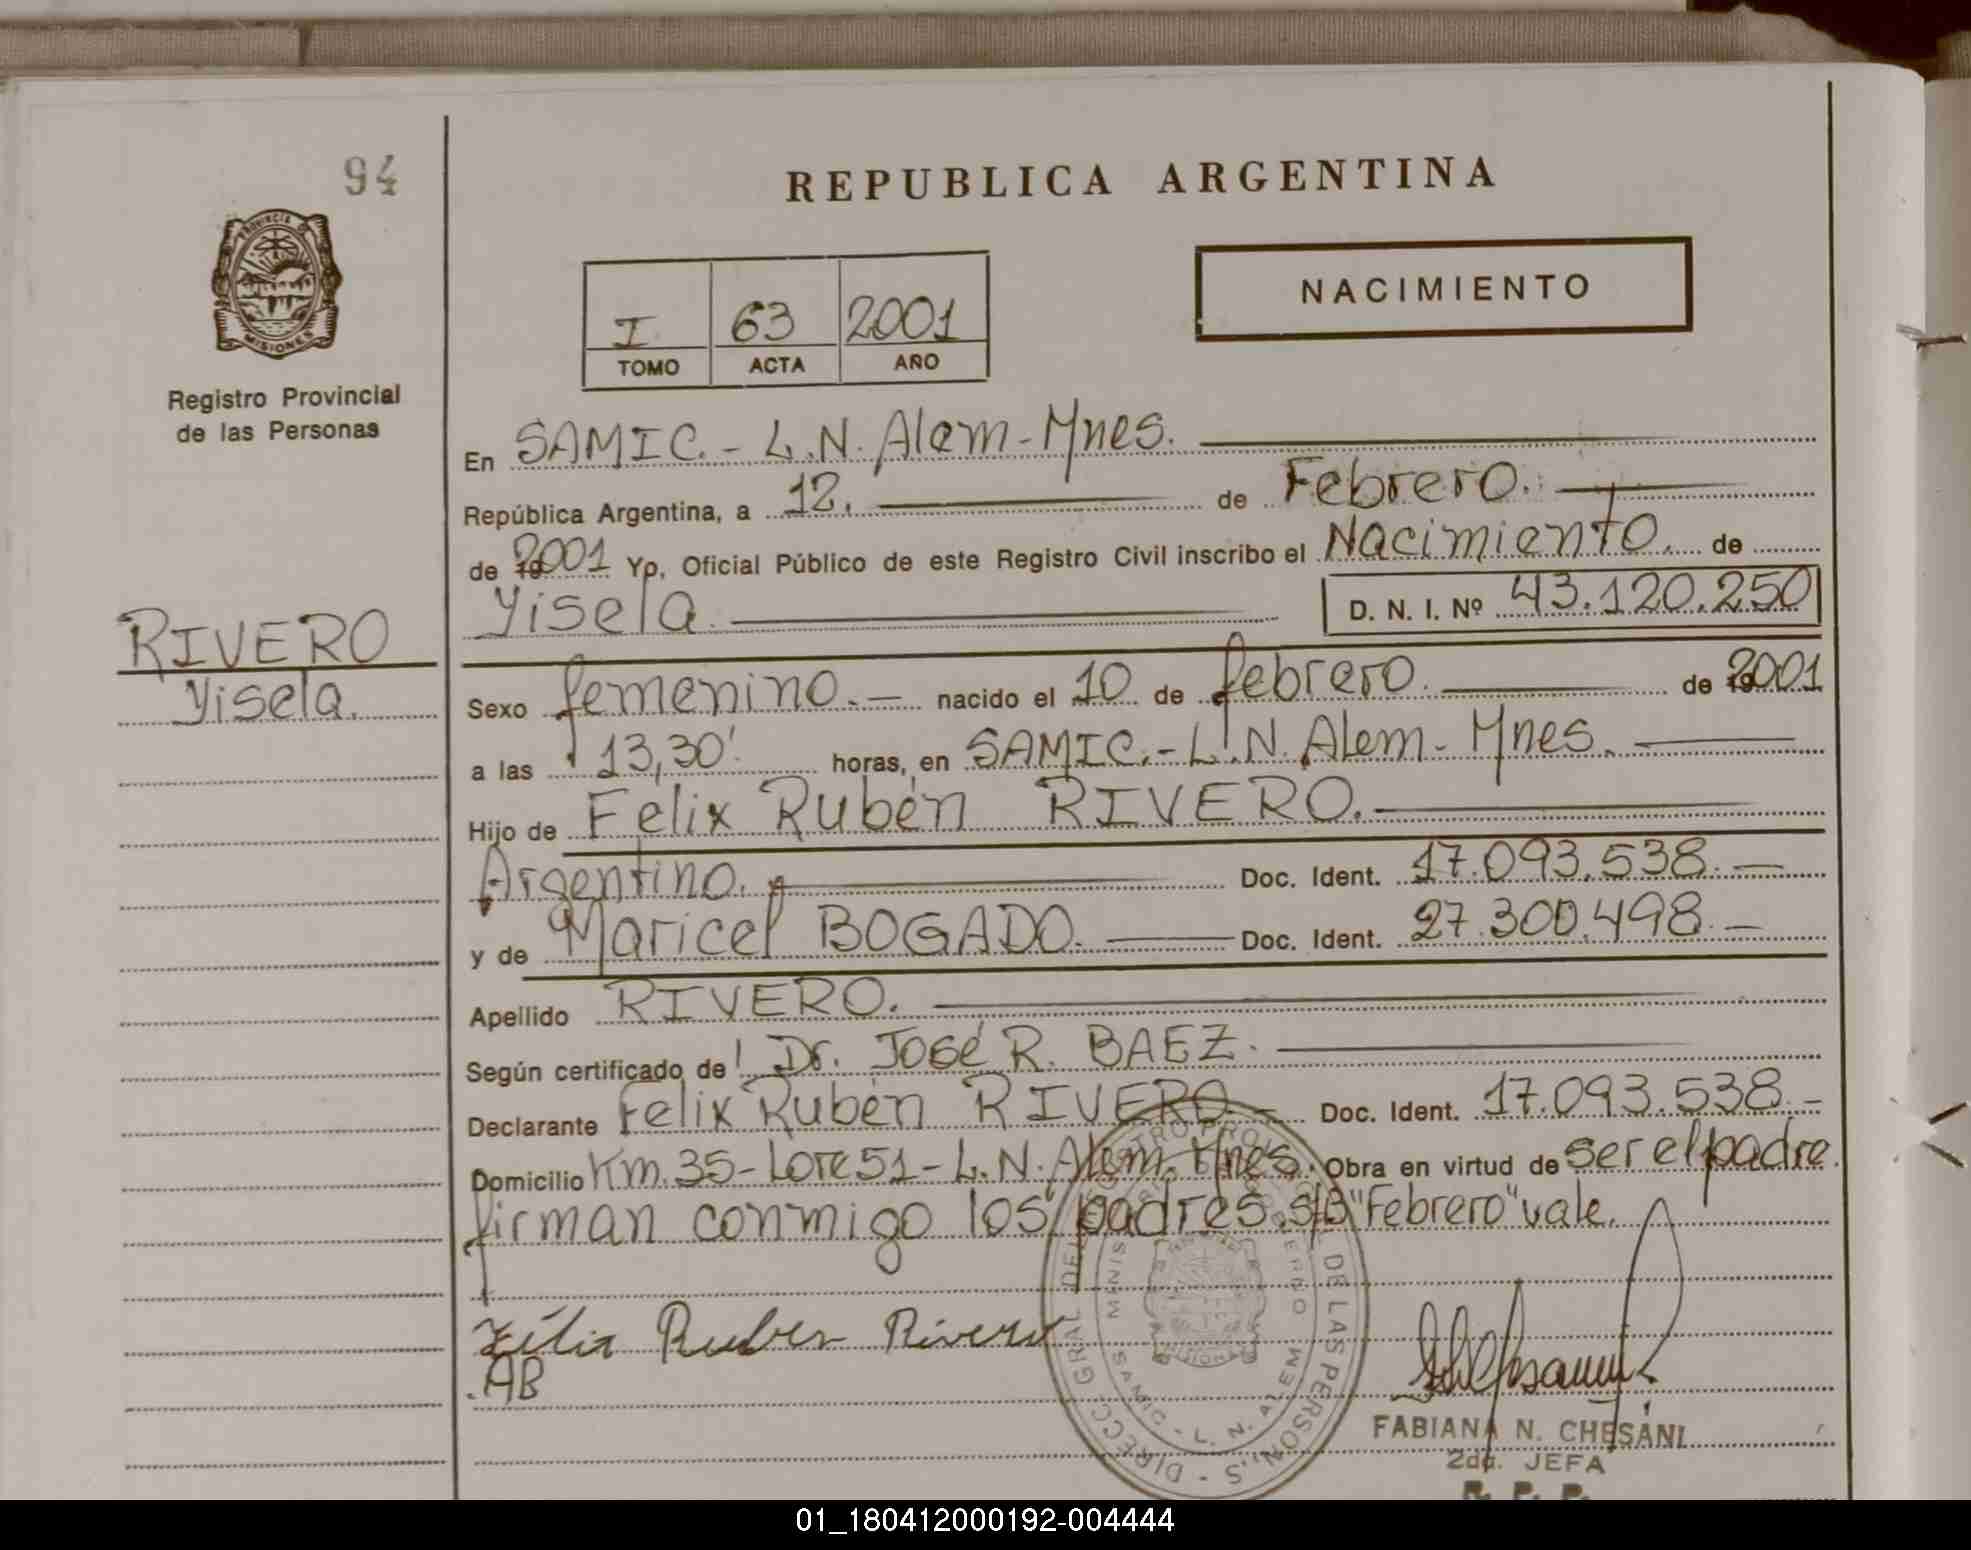 94
REPUBLICA ARGENTINA
PROVINCIA DE
MISIONES
I 63 2001
TOMO ACTA AÑO
NACIMIENTO
Registro Provincial
de las Personas
En SAMIC.- L.N. Alem - Mnes.
República Argentina, a 12. de Febrero.
de 2001 Yo, Oficial Público de este Registro Civil inscribo el Nacimiento. de
Yisela. D. N. I. Nº 43.120.250
RIVERO
Yisela.
Sexo femenino.- nacido el 10 de febrero. de 2001
a las 13,30' horas, en SAMIC.- L.N. Alem - Mnes.
Hijo de Felix Rubén RIVERO.
Argentino. Doc. Ident. 17.093.538.-
y de Maricel BOGADO. Doc. Ident. 27.300.498.-
Apellido RIVERO.
Según certificado de Dr. José R. BAEZ.
Declarante Felix Rubén RIVERO.- Doc. Ident. 17.093.538.-
Domicilio Km. 35 - Lote 51 - L.N. Alem. Mnes. Obra en virtud de ser el padre.
firman conmigo los padres. S/B "Febrero" vale.
Félix Ruben Rivero
AB
DIRECC. GRAL. DEL REGISTRO PROVINCIAL DE LAS PERSONAS
SAMIC - L. N. ALEM
FABIANA N. CHESANI
2da. JEFA
R. P. P.
01_180412000192-004444